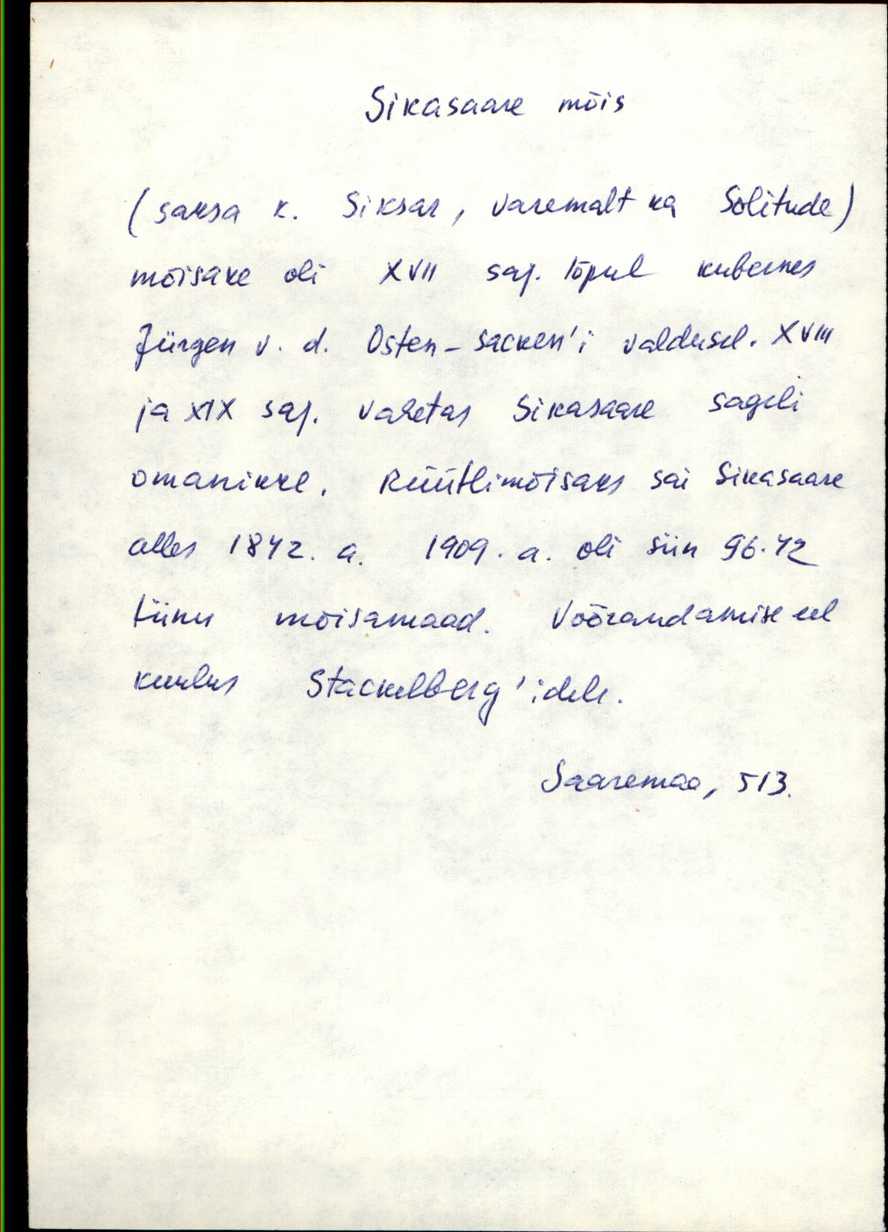 Sikasaare mõis
(saksa k. Siksar, varemalt ka Solitude)
mõisake oli XVII saj. lõpul kuberner
Jürgen v. d. Osten-Sacken'i valdusel. XVIII
ja XIX saj. vahetas Sikasaare sageli
omanikke. Rüütlimõisaks sai Sikasaare
alles 1842. a. 1909. a. oli siin 96.42
tiinu mõisamaad. Võõrandamise eel
kuulus Stackelberg'idele.
Saaremaa, 513.